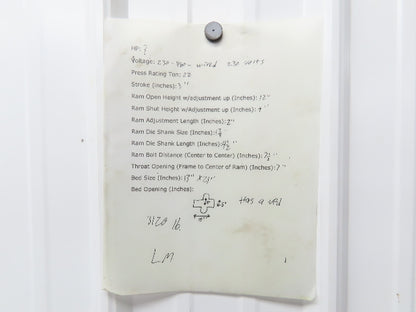 HP: ?
Voltage: 230 - wired 230 volts
Press Rating Ton: 22
Stroke (inches): 3"
Ram Open Height w/adjustment up (Inches): 12"
Ram Shut Height w/Adjustment up (Inches): 9"
Ram Adjustment Length (Inches): 2"
Ram Die Shank Size (Inches):
Ram Die Shank Length (Inches):
Ram Bolt Distance (Center to Center) (Inches):
Throat Opening (Frame to Center of Ram) (Inches): 7"
Bed Size (Inches): X
Bed Opening (Inches):
Has a
lb.
LM